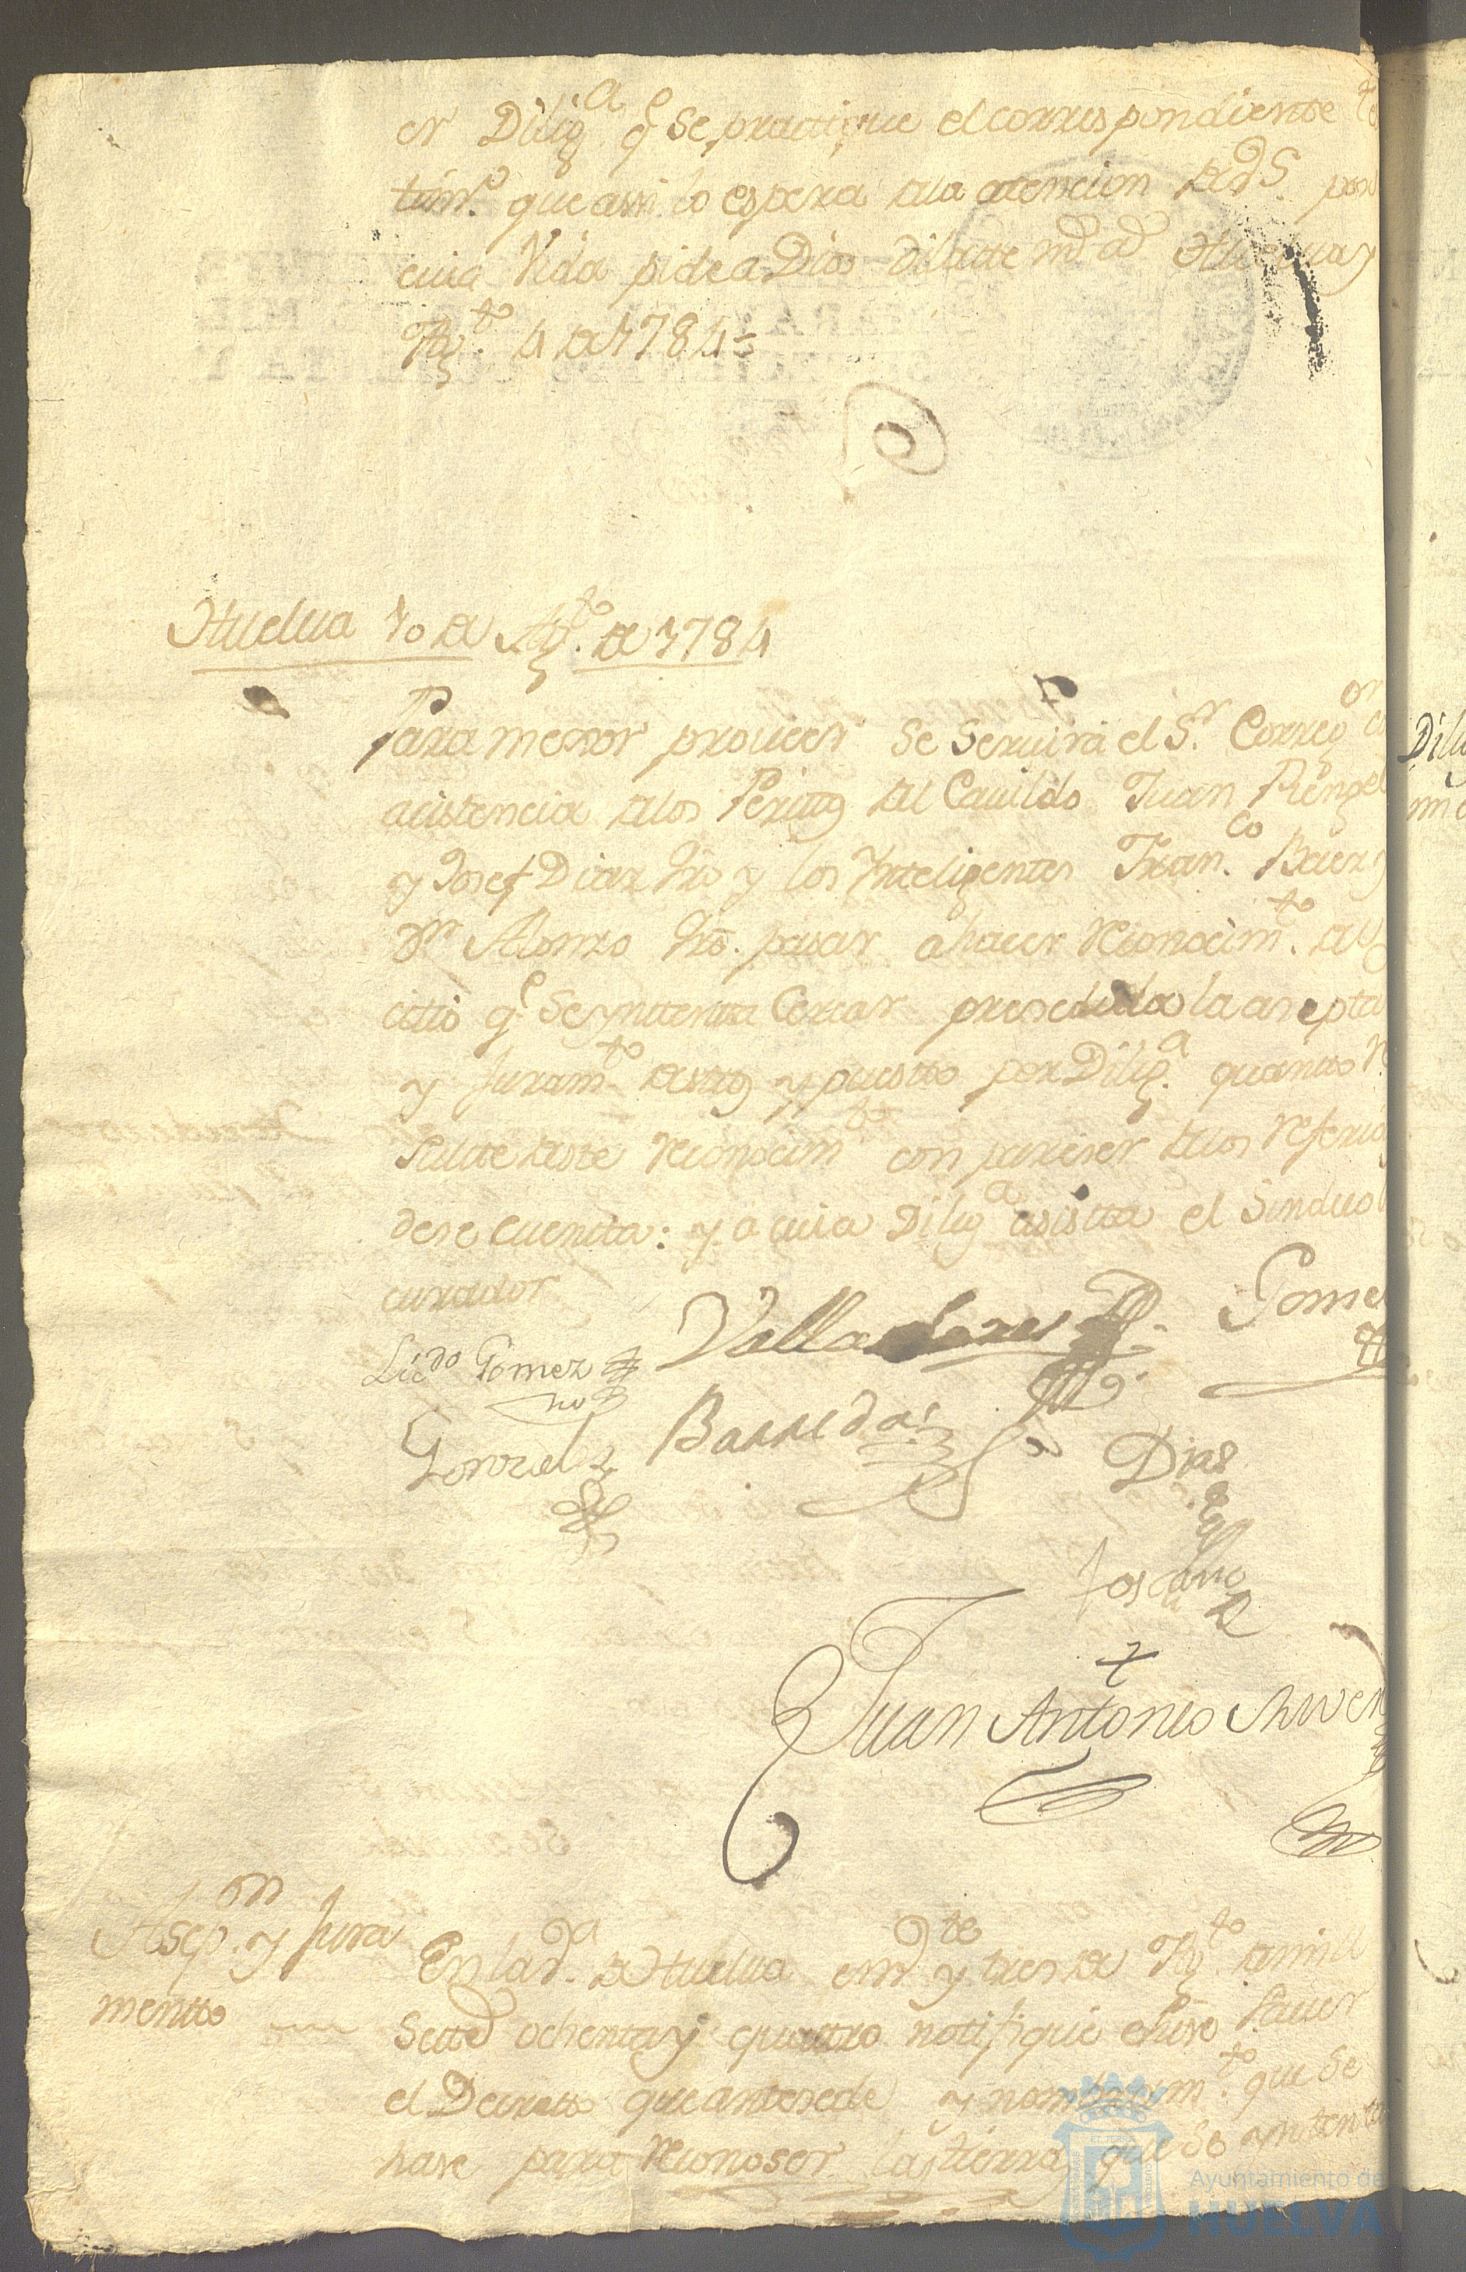 en Dilig.ª q.e se practique el correspondiente
tim.to que assi lo espera de la atencion de V.S. por
cuia Vida pide a Dios dilatte m.s a.s Huelva y
Ag.to 4 de 1784=
Huelva 10 de Ag.to de 1784
Para mexor proveer se servirá el S.r Correg.or
acistencia de los Peritos del Cavildo Juan Rengel
y Josef Diaz Hro y los Ynteligentes Fran.co Baez y
D.n Alonso Hro. pasar a hacer reconocim.to del
citio q.e se ynttenta Cercar presedida la asepta
y Juram.to destos y puestto por Dilig.ª quantto re
sulte deste reconocim.to con pareser de los referidos
dese cuentta: y a cuia Dilig.ª asistta el Sindico
curador
Valladares Gomez
Lic.do Gomez
Gonzalez Barreda Dias
Toscano
Juan Antonio
Asep.on y Jura
mentto
En la d.ha de Huelva en v.te y tres de Ag.to de mill
Settes ochenta y quattro notifiqué e hise saver
el Decretto que antesede y nombram.to que se
hase para reconoser las tierras que se yntenta
Dilig
Ayuntamiento de
HUELVA